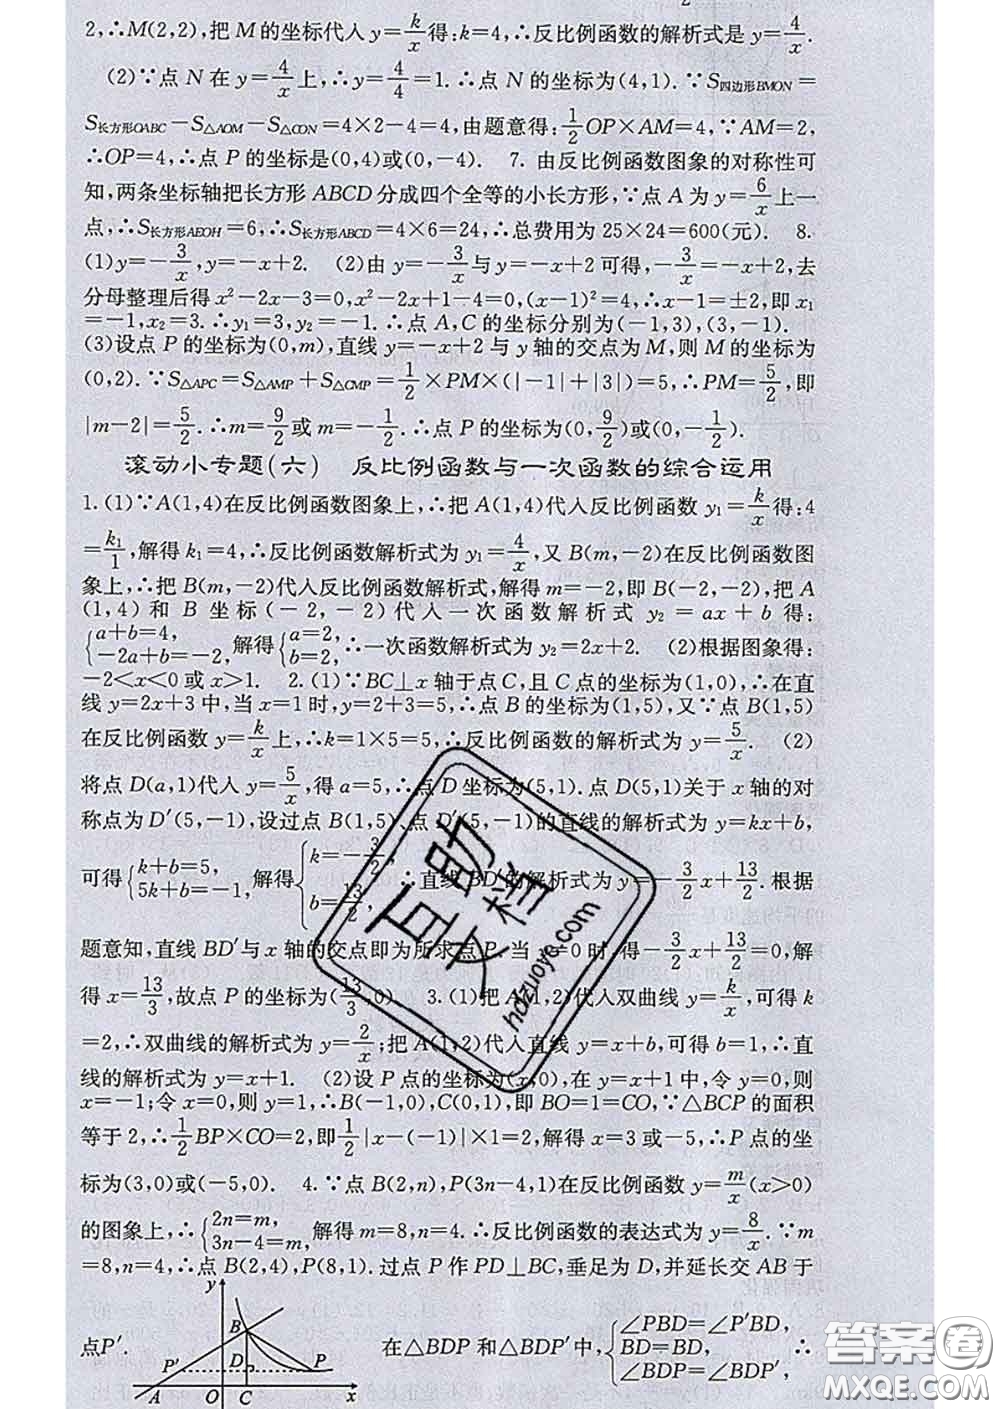 2,∴M(2,2),把M的坐标代入y=k/x得:k=4,∴反比例函数的解析式是y=4/x.
(2)∵点N在y=4/x上,∴y=4/4=1.∴点N的坐标为(4,1).∵S四边形BMON=
S长方形OABC-S△AOM-S△CON=4×2-4=4,由题意得:1/2OP×AM=4,∵AM=2,
∴OP=4,∴点P的坐标是(0,4)或(0,-4). 7. 由反比例函数图象的对称性可
知,两条坐标轴把长方形ABCD分成四个全等的小长方形,∵点A为y=6/x上一
点,∴S长方形AEOH=6,∴S长方形ABCD=4×6=24,∴总费用为25×24=600(元). 8.
(1)y=-3/x,y=-x+2. (2)由y=-3/x与y=-x+2可得,-3/x=-x+2,去
分母整理后得x²-2x-3=0,x²-2x+1-4=0,(x-1)²=4,∴x-1=±2,即x₁
=-1,x₂=3.∴y₁=3,y₂=-1.∴点A,C的坐标分别为(-1,3),(3,-1).
(3)设点P的坐标为(0,m),直线y=-x+2与y轴的交点为M,则M的坐标为
(0,2).∵S△APC=S△AMP+S△CMP=1/2×PM×(|-1|+|3|)=5,∴PM=5/2,即
|m-2|=5/2.∴m=9/2或m=-1/2.∴点P的坐标为(0,9/2)或(0,-1/2).
滚动小专题(六) 反比例函数与一次函数的综合运用
1.(1)∵A(1,4)在反比例函数图象上,∴把A(1,4)代入反比例函数y₁=k/x得:4
=k₁/1,解得k₁=4,∴反比例函数解析式为y₁=4/x,又B(m,-2)在反比例函数图
象上,∴把B(m,-2)代入反比例函数解析式,解得m=-2,即B(-2,-2),把A
(1,4)和B坐标(-2,-2)代入一次函数解析式y₂=ax+b得:
{a+b=4, -2a+b=-2, 解得{a=2, b=2, ∴一次函数解析式为y₂=2x+2. (2)根据图象得:
-2<x<0或x>1. 2.(1)∵BC⊥x轴于点C,且C点的坐标为(1,0),∴在直
线y=2x+3中,当x=1时,y=2+3=5,∴点B的坐标为(1,5),又∵点B(1,5)
在反比例函数y=k/x上,∴k=1×5=5,∴反比例函数的解析式为y=5/x. (2)
将点D(a,1)代入y=5/x,得a=5,∴点D坐标为(5,1).点D(5,1)关于x轴的对
称点为D′(5,-1),设过点B(1,5)、点D′(5,-1)的直线的解析式为y=kx+b,
可得{k+b=5, 5k+b=-1, 解得{k=-3/2, b=13/2, ∴直线BD′的解析式为y=-3/2x+13/2.根据
题意知,直线BD′与x轴的交点即为所求点P.当y=0时,得-3/2x+13/2=0,解
得x=13/3,故点P的坐标为(13/3,0). 3.(1)把A(1,2)代入双曲线y=k/x,可得k
=2,∴双曲线的解析式为y=2/x;把A(1,2)代入直线y=x+b,可得b=1,∴直
线的解析式为y=x+1. (2)设P点的坐标为(x,0),在y=x+1中,令y=0,则
x=-1;令x=0,则y=1,∴B(-1,0),C(0,1),即BO=1=CO,∵△BCP的面积
等于2,∴1/2BP×CO=2,即1/2|x-(-1)|×1=2,解得x=3或-5,∴P点的坐
标为(3,0)或(-5,0). 4.∵点B(2,n),P(3n-4,1)在反比例函数y=m/x(x>0)
的图象上,∴{2n=m, 3n-4=m, 解得m=8,n=4.∴反比例函数的表达式为y=8/x.∵m
=8,n=4,∴点B(2,4),P(8,1).过点P作PD⊥BC,垂足为D,并延长交AB于
点P′. 在△BDP和△BDP′中,{∠PBD=∠P′BD, BD=BD, ∠BDP=∠BDP′, ∴
y
B
P′ D P
A O C x
互助
文档
hdzuoye.com
答案圈
MXQE.COM